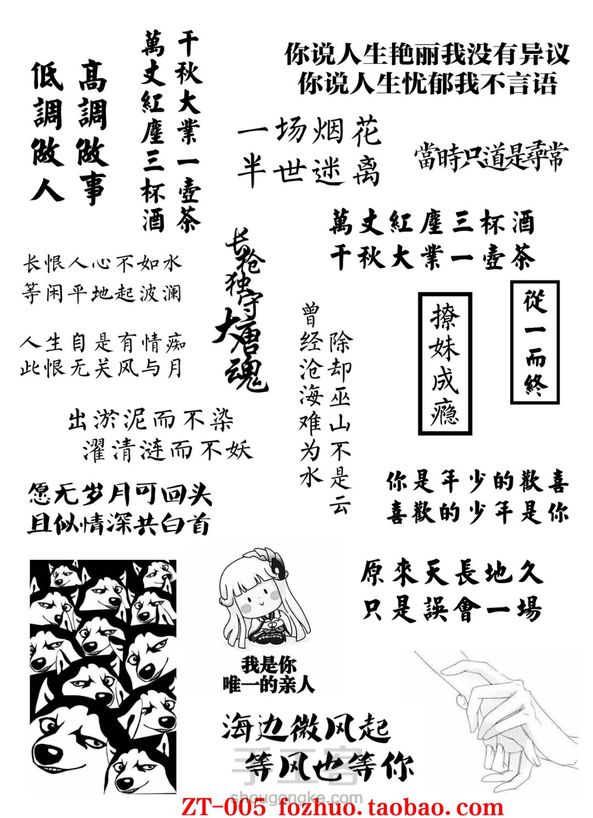 高調做事
低調做人
千秋大業一壺茶
萬丈紅塵三杯酒
你说人生艳丽我没有异议
你说人生忧郁我不言语
一场烟花
半世迷离
當時只道是尋常
萬丈紅塵三杯酒
千秋大業一壺茶
长恨人心不如水
等闲平地起波澜
长枪独守
大唐魂
曾经沧海难为水
除却巫山不是云
撩妹成瘾
從一而終
人生自是有情痴
此恨无关风与月
出淤泥而不染
濯清涟而不妖
愿无岁月可回头
且似情深共白首
你是年少的歡喜
喜歡的少年是你
原來天長地久
只是誤會一場
我是你
唯一的亲人
海边微风起
等风也等你
手工客
shougongke.com
ZT-005 fozhuo.taobao.com